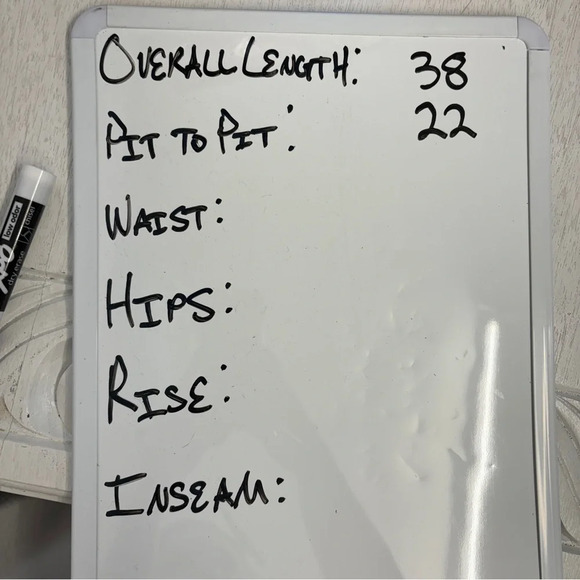 OVERALL LENGTH: 38
PIT TO PIT: 22
WAIST:
HIPS:
RISE:
INSEAM:
EXPO
low odor
dry erase